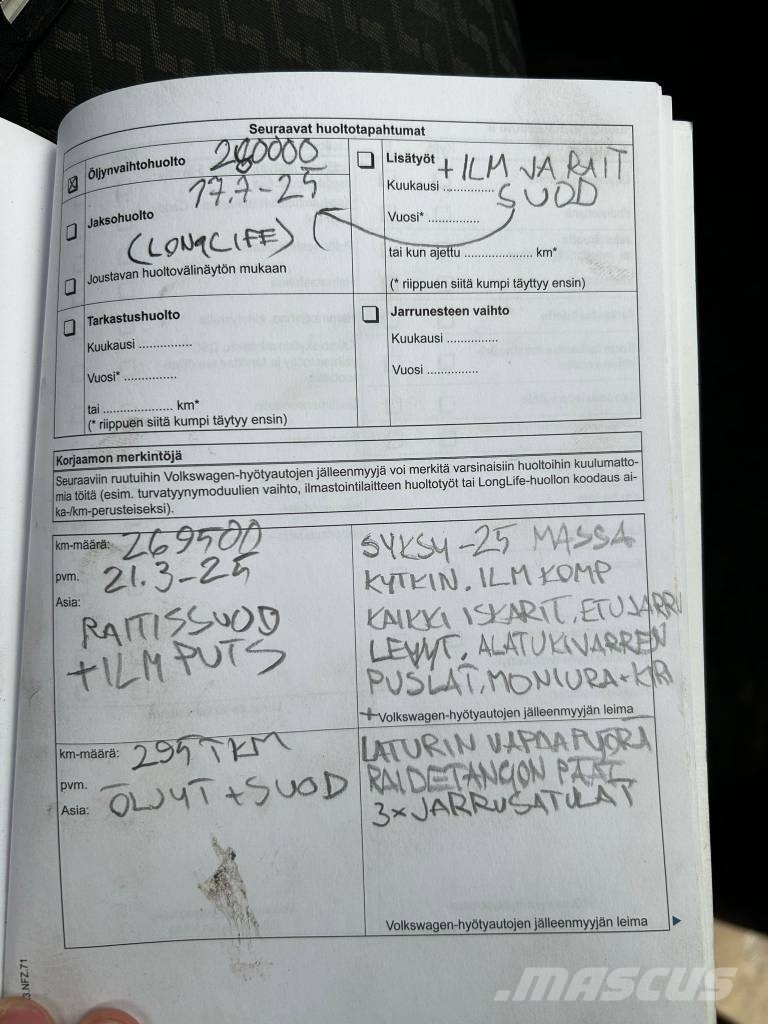 Seuraavat huoltotapahtumat
Öljynvaihtohuolto 280000
17.7-25
Jaksohuolto
(LONGLIFE)
Joustavan huoltovälinäytön mukaan
Lisätyöt + ILM JA RAIT
Kuukausi .............. SUOD
Vuosi* ..............
tai kun ajettu ................... km*
(* riippuen siitä kumpi täyttyy ensin)
Tarkastushuolto
Kuukausi ..............
Vuosi* ..............
tai ................... km*
(* riippuen siitä kumpi täytyy ensin)
Jarrunesteen vaihto
Kuukausi ..............
Vuosi ..............
Korjaamon merkintöjä
Seuraaviin ruutuihin Volkswagen-hyötyautojen jälleenmyyjä voi merkitä varsinaisiin huoltoihin kuulumatto-
mia töitä (esim. turvatyynymoduulien vaihto, ilmastointilaitteen huoltotyöt tai LongLife-huollon koodaus ai-
ka-/km-perusteiseksi).
km-määrä: 269500
pvm. 21.3-25
Asia:
RAITISSUOD
+ ILM PUTS
SYKSY -25 MASSA
KYTKIN, ILM KOMP
KAIKKI ISKARIT, ETUJARRU
LEVYT, ALATUKIVARREN
PUSLAT, MONIURA+KIR
+ Volkswagen-hyötyautojen jälleenmyyjän leima
km-määrä: 295 TKM
pvm.
Asia: ÖLJYT + SUOD
LATURIN VAPAAPYÖRÄ
RAIDETANGON PÄÄT
3x JARRUSATULAT
Volkswagen-hyötyautojen jälleenmyyjän leima
3.NFZ.71
.MASCUS